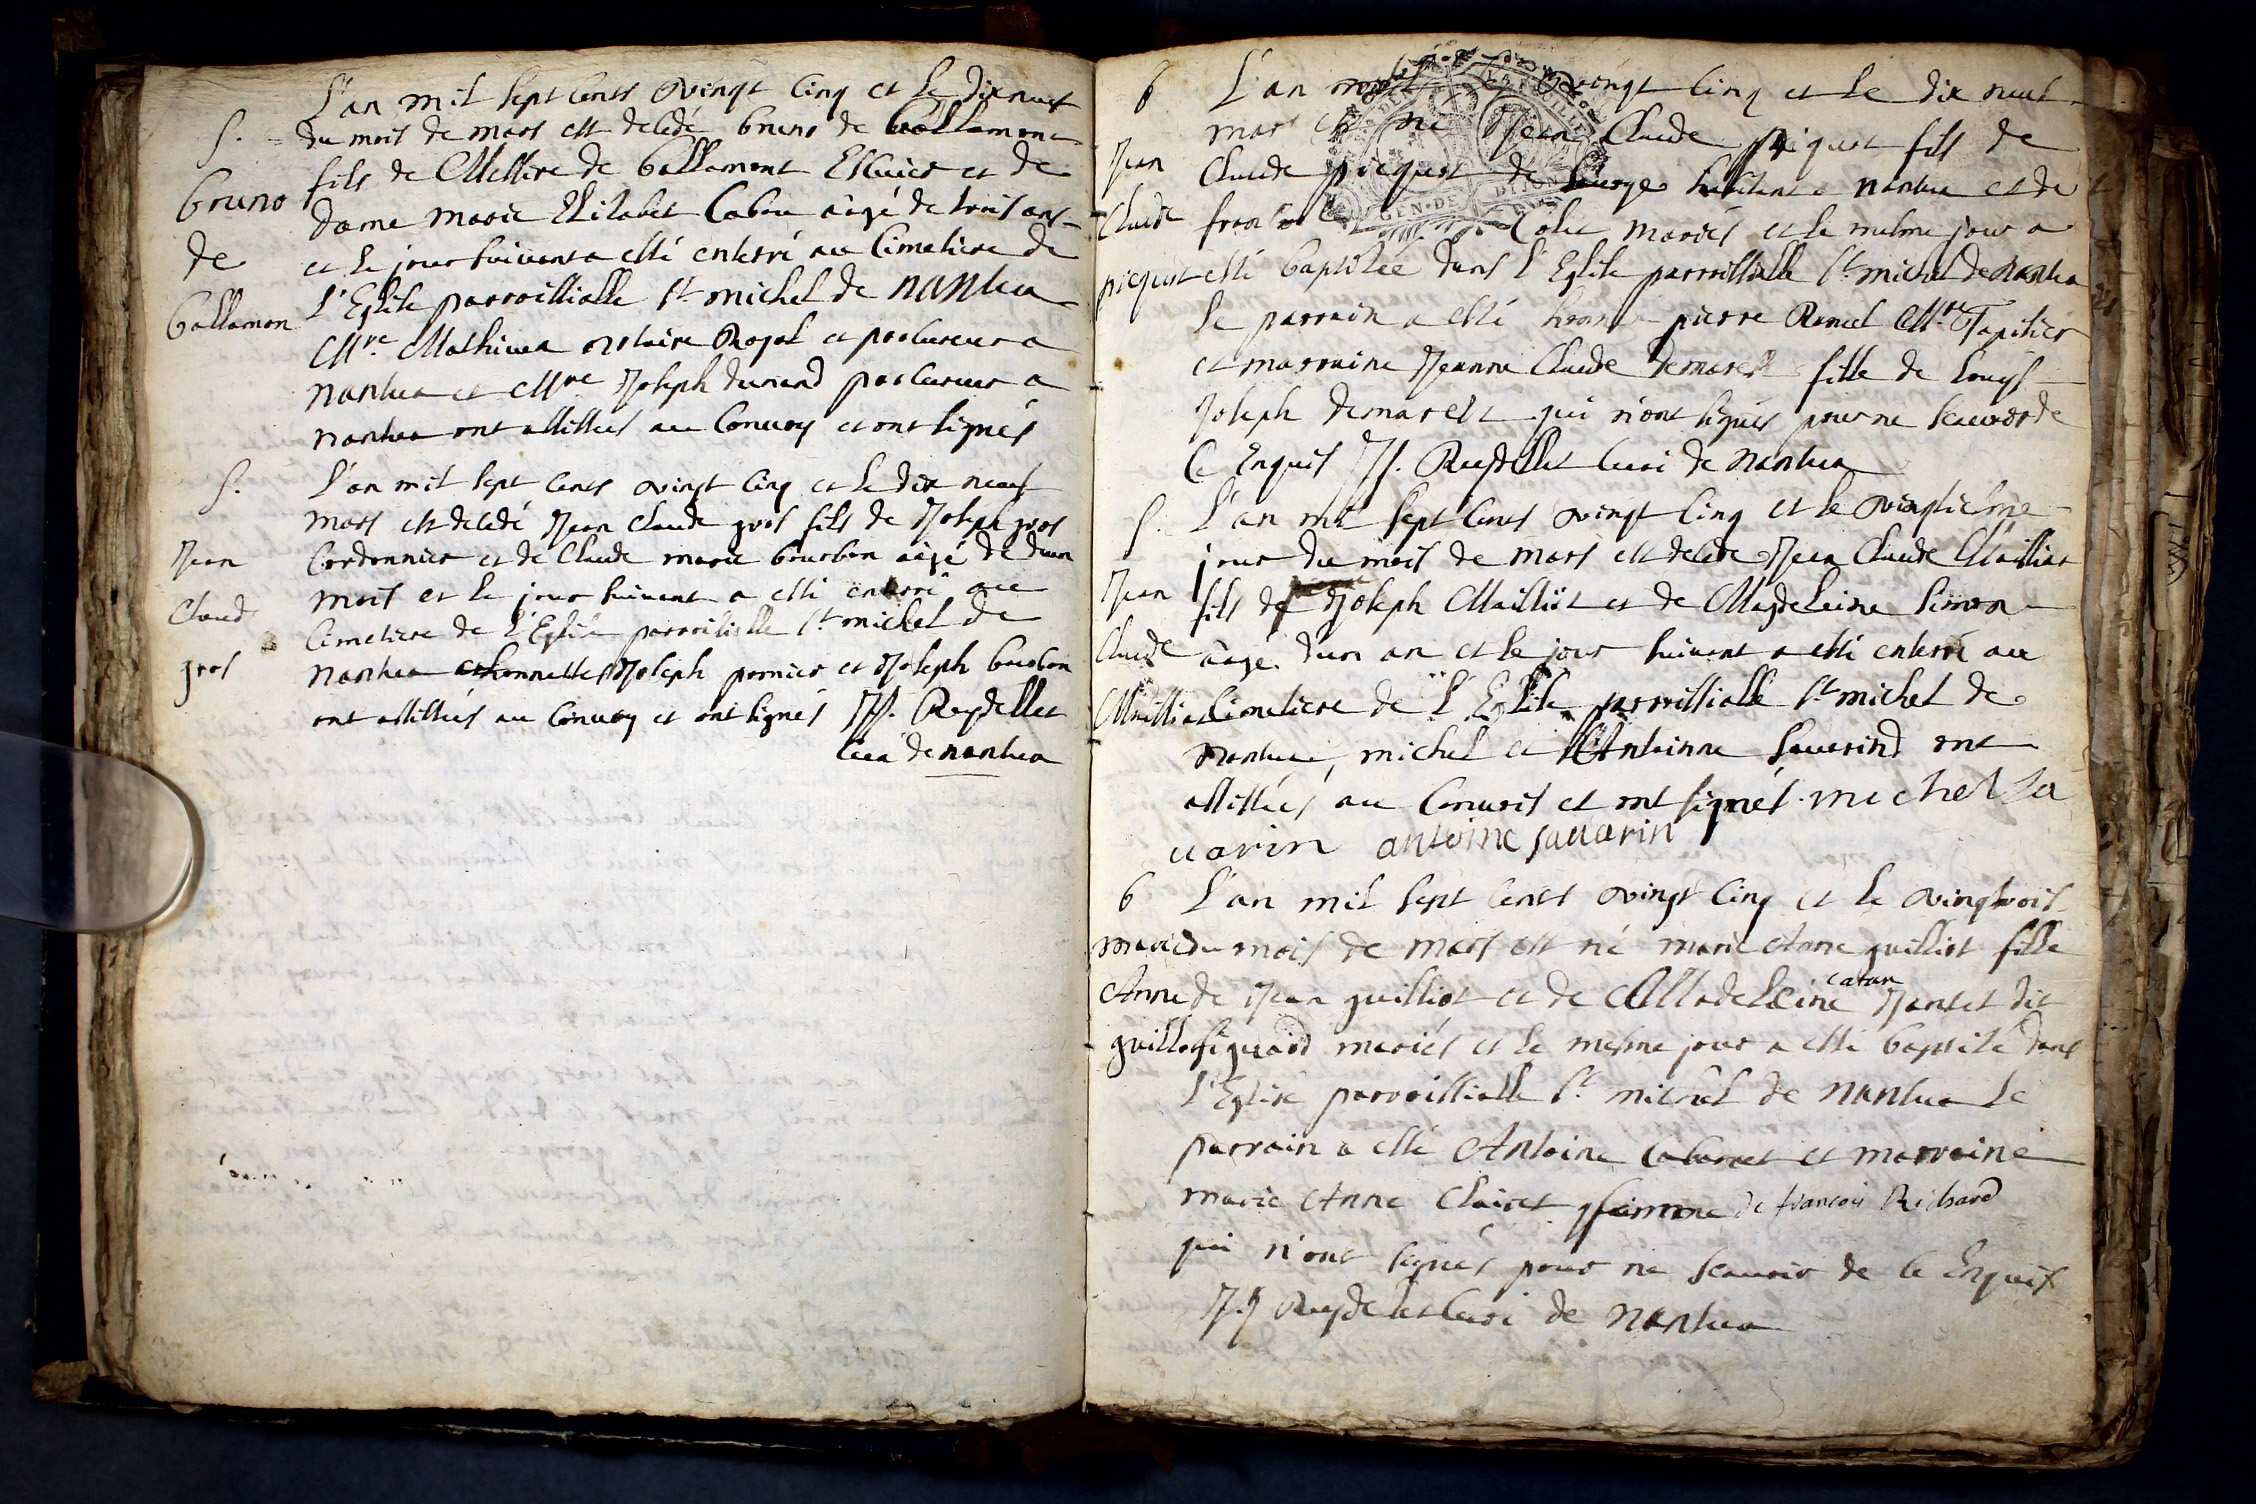 S.
Bruno
de
ballamon
L'an mil sept cents vingt cinq et le dix neuf
du mois de mars est decedé bruno de ballamont
fils de Messire de ballamont Escuier et de
dame marie Elisabet Cabou aagé de trois ans
et le jour suivant a esté enterré au Cimetiere de
L'Eglise parroissialle St michel de nantua
Mre. Mathieu notaire Royal et procureur a
nantua et Mre Joseph durand procureur a
nantua ont assistés au Convoy et ont signés
S.
Jean
Claude
gros
L'an mil sept cents vingt cinq et le dix neuf
mars est decedé Jean claude gros fils de Joseph gros
Cordonnier et de Claude marie bourbon aagé de deux
mois et le jour suivant a esté enterré au
Cimetiere de L'Eglise parroissialle St michel de
nantua et honnestes Joseph pernier et Joseph bourbon
ont assistés au Convoy et ont signés JJ. Reydellet
Curé de nantua
b
Jean
Claude
picquet
L'an mil vingt cinq et le dix neuf
mars est né Jean Claude piquet fils de
Claude picquet de bourge habitant a nantua et de
Colet mariés et le mesme jour a
esté baptisée dans l'Eglise parroissialle St michel de Nantua
le parrain a esté pierre Ramel Mre Tapitier
et marraine Jeanne Claude demarest fille de Louys
Joseph demarest qui n'ont signés pour ne scavoir de
Ce Enquis JJ. Reydellet Curé de nantua
S.
Jean
Claude
Mailliat
L'an mil sept cents vingt cinq et le vingtiéme
jour du mois de mars est decedé Jean Claude Mailliat
fils de Joseph Mailliat et de Magdeleine Simon
aagé d'un an et le jour suivant a esté enterré au
Cimetiere de L'Eglise parroissialle St michel de
nantua, michel et Antoinne Savarind ont
assistés au Convois et ont signés. michel Sa
uarin antoine sauarin
b
marie
Anne
guilliot
L'an mil sept cents vingt cinq et le vingtrois
du mois de mars est né marie Anne guilliot fille
catan
de Jean guilliot et de Madeleine Jantet dit
figuard mariés et le mesme jour a esté baptisé dans
l'Eglise parroissialle St. michel de nantua le
parrain a esté Antoine Cabarret et marraine
marie Anne Clairet femme de francois Richard
qui n'ont signés pour ne scavoir de ce Enquis
JJ Reydellet Curé de nantua